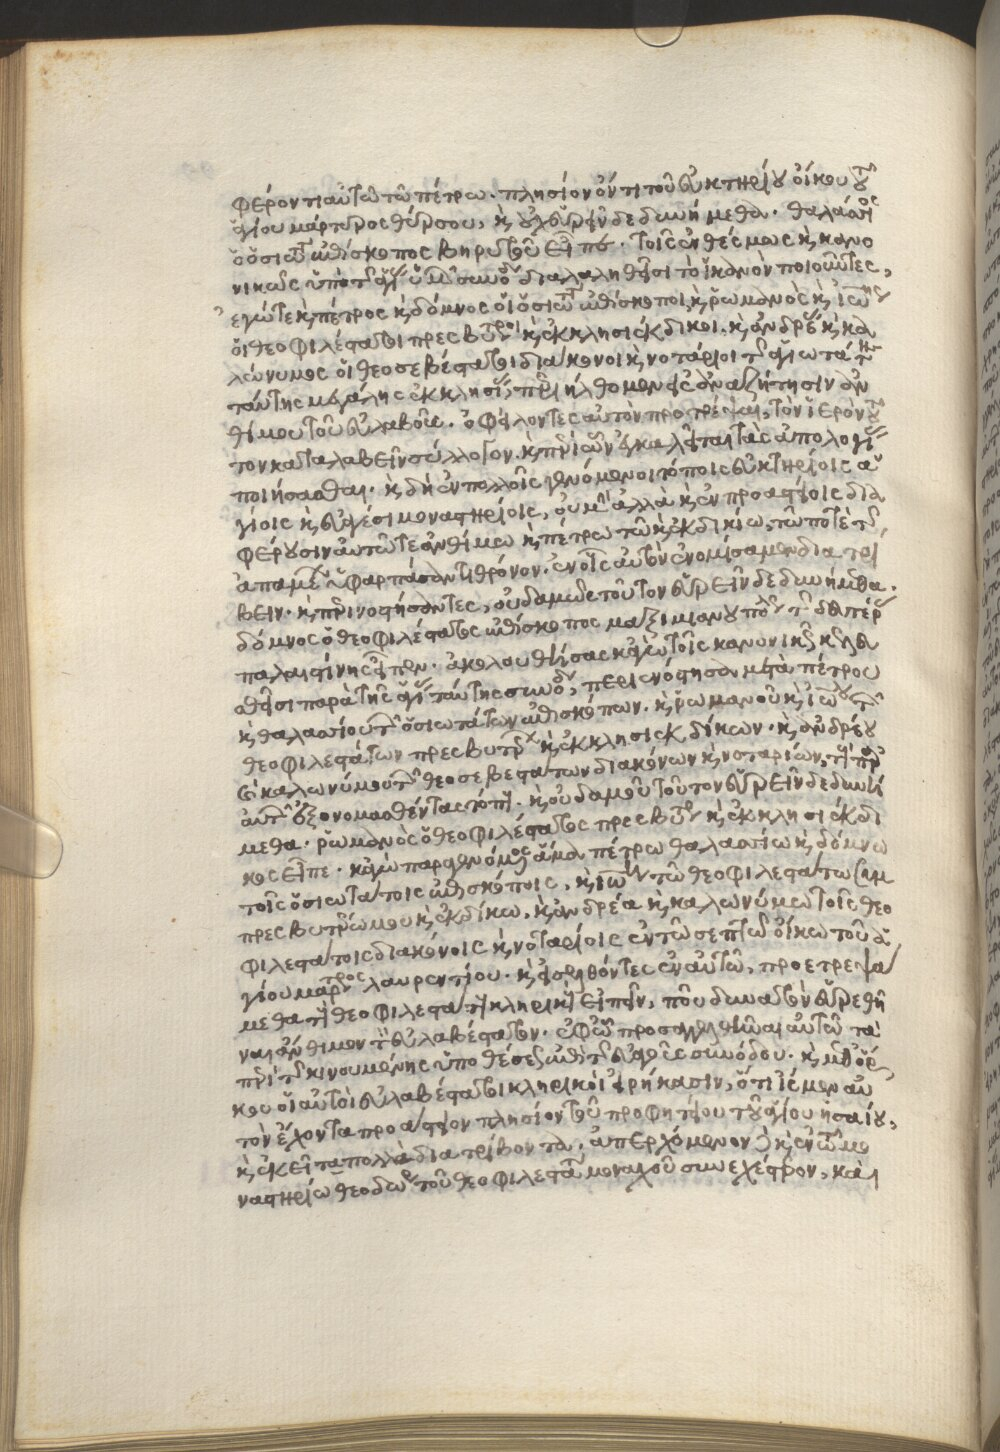 φέροντι αὐτῶ τῶ πέτρω. πλησίον ὄντι τοῦ εὐκτηρίου οἴκου τοῦ
ἁγίου μάρτυρος θύρσου, καὶ οὐχ εὑρεῖν δεδυνήμεθα. θαλάσσιος
ὁ ὁσιώτ ἐπίσκοπος βηρυτοῦ εἶπεν. τοῖς ἐνθέσμως καὶ κανο
νικῶς ὑπὸ τῆς ἁγί ὑμῶν συνόδ διαλαληθεῖσι τὸ ἱκανὸν ποιοῦντες,
ἐγώ τε καὶ πέτρος καὶ δόμνος οἱ ὁσιώτ ἐπίσκοποι καὶ ῥωμανὸς καὶ ἰωάννης
οἱ θεοφιλέστατοι πρεσβύτεροι καὶ ἐκκλησιέκδικοι. καὶ ἀνδρέας καὶ κα
λώνυμος οἱ θεοσεβέστατοι διάκονοι καὶ νοτάριοι τῆς ἁγιωτάτης
ταύτης μεγάλης ἐκκλησίας, περιήλθομεν εἰς ἀναζήτησιν ἀν
θίμου τοῦ εὐλαβοῦς. ὀφείλοντες αὐτὸν προτρέψαι, τὸν ἱερὸν τοῦ
τον καταλαβεῖν σύλλογον. καὶ περὶ ὧν ἐγκαλεῖται τὰς ἀπολογίας
ποιήσασθαι. καὶ δὴ ἐν πολλοῖς γενόμενοι τόποις εὐκτηρίοις
γίοις καὶ εὐαγέσι μοναστηρίοις, οὐ μὴν ἀλλὰ καὶ ἐν προαστείοις δια
φέρουσιν αὐτῶ τε ἀνθίμω καὶ πέτρω τῶ καὶ ἐκδικίω, τῶ ποτὲ τῆς
ἀπαμέων ὑφαρπάσαντι θρόνον. ἐν οἷς αὐτὸν ἐνομίσαμεν διατρί
βειν. καὶ περινοστήσαντες, οὐδαμῶς τοῦτον εὑρεῖν δεδυνήμεθα.
δόμνος ὁ θεοφιλέστατος ἐπίσκοπος μαξιμιανουπόλεως τῆς δευτέρας
παλαιστίνης εἶπεν. ἀκολουθήσας κἀγὼ τοῖς κανονικῶς κελευ
σθεῖσι παρὰ τῆς ἁγί ταύτης συνόδ, περιενόστησα μετὰ πέτρου
καὶ θαλασσίου τῶν ὁσιωτάτων ἐπισκόπων. καὶ ῥωμανοῦ καὶ ἰωάννου τῶν
θεοφιλεστάτων πρεσβυτέρων καὶ ἐκκλησιεκδίκων. καὶ ἀνδρέου
καὶ καλωνύμου τῶν θεοσεβεστάτων διακόνων καὶ νοταρίων, τοὺς παρ
αὐτῶν ἐξονομασθέντας τόπους. καὶ οὐδαμοῦ τοῦτον εὑρεῖν δεδυνή
μεθα. ῥωμανὸς ὁ θεοφιλέστατος πρεσβύτερος καὶ ἐκκλησιέκδι
κος εἶπε. κἀγὼ παραγενόμενος ἅμα πέτρω θαλασσίω καὶ δόμνω
τοῖς ὁσιωτάτοις ἐπισκόποις, καὶ ἰωάννη τῶ θεοφιλεστάτω συμ
πρεσβυτέρω μου καὶ ἐκδίκω, καὶ ἀνδρέα καὶ καλωνύμω τοῖς θεο
φιλεστάτοις διακόνοις καὶ νοταρίοις ἐν τῶ σεπτῶ οἴκω τοῦ ἁ
γίου μάρτυρος λαυρεντίου. καὶ εἰσελθόντες ἐν αὐτῶ, προετρεψά
μεθα τοὺς θεοφιλεστάτους κληρικοὺς εἰπεῖν, ποῦ δυνατὸν εὑρεθῆ
ναι ἄνθιμον τὸν εὐλαβέστατον. ἐφ' ὧ προσαγγελθῆναι αὐτῶ τὰ
περὶ τῆς κινουμένης ὑποθέσεως ἐπὶ τῆς εὐαγοῦς συνόδου. καὶ μεθ' ὅρ
κου οἱ αὐτοὶ εὐλαβέστατοι κληρικοὶ εἰρήκασιν, ὅτι ἴσμεν αὐ
τὸν ἔχοντα προάστειον πλησίον τοῦ προφητείου τοῦ ἁγίου ἡσαίου,
καὶ ἐκεῖ τὰ πολλὰ διατρίβοντα, ἀπερχόμενον δὲ καὶ ἐν τῶ μο
ναστηρίω θεοδώρου τοῦ θεοφιλεστάτου μοναχοῦ συνεχέστερον, καὶ